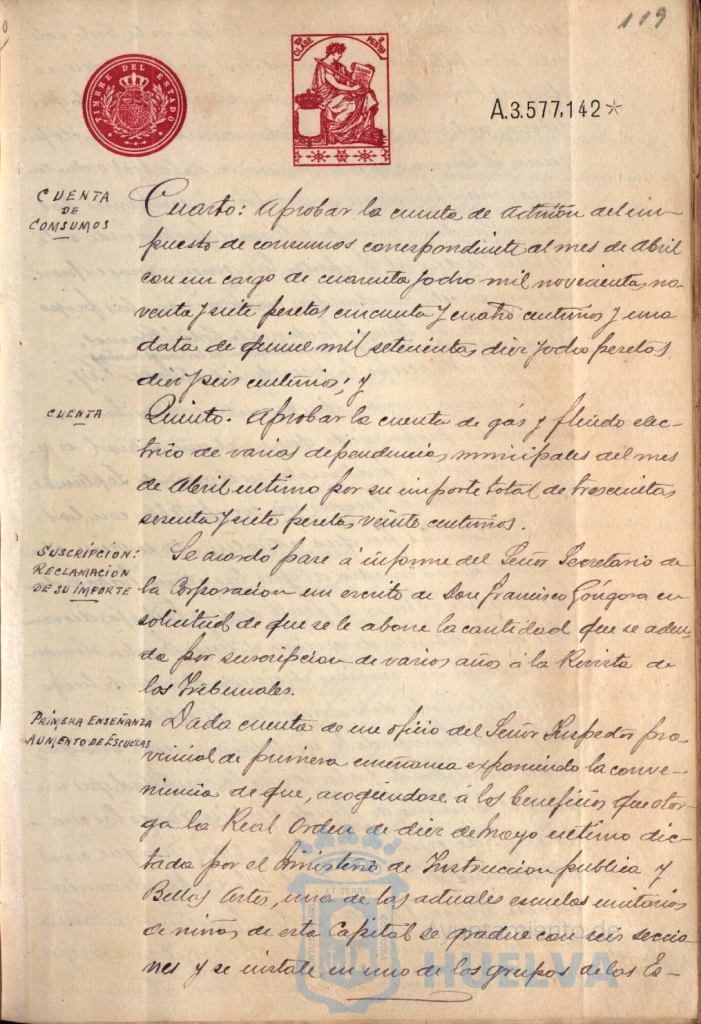 119
TIMBRE DEL ESTADO
10ª CLASE 2 PESTAS
A.3.577.142*
CUENTA
DE
CONSUMOS
Cuarto: Aprobar la cuenta de Admon del im-
puesto de consumos correspondiente al mes de Abril
con un cargo de cuarenta y ocho mil novecientas no-
venta y siete pesetas cincuenta y cuatro centimos y una
data de quince mil setecientas diez y ocho pesetas
diez y seis centimos; y
CUENTA
Quinto. Aprobar la cuenta de gas y fluido elec-
trico de varias dependencias municipales del mes
de Abril ultimo por su importe total de trescientas
sesenta y siete pesetas veinte centimos.
SUSCRIPCION:
RECLAMACION
DE SU IMPORTE
Se acordó pase á informe del Señor Secretario de
la Corporacion un escrito de Don Francisco Góngora en
solicitud de que se le abone la cantidad que se adeu-
da por suscripcion de varios años á la Revista de
los Tribunales.
PRIMERA ENSEÑANZA
AUMENTO DE ESCUELAS
Dada cuenta de un oficio del Señor Inspector pro-
vincial de primera enseñanza exponiendo la conve-
niencia de que, acogiendose á los beneficios que otor-
ga la Real Orden de diez de Mayo ultimo dic-
tada por el Ministerio de Instruccion publica y
Bellas Artes, una de las actuales escuelas unitarias
de niños de esta Capital se gradue con seis seccio-
nes y se instale en uno de los grupos de las Es-
ayuntamiento de
HUELVA